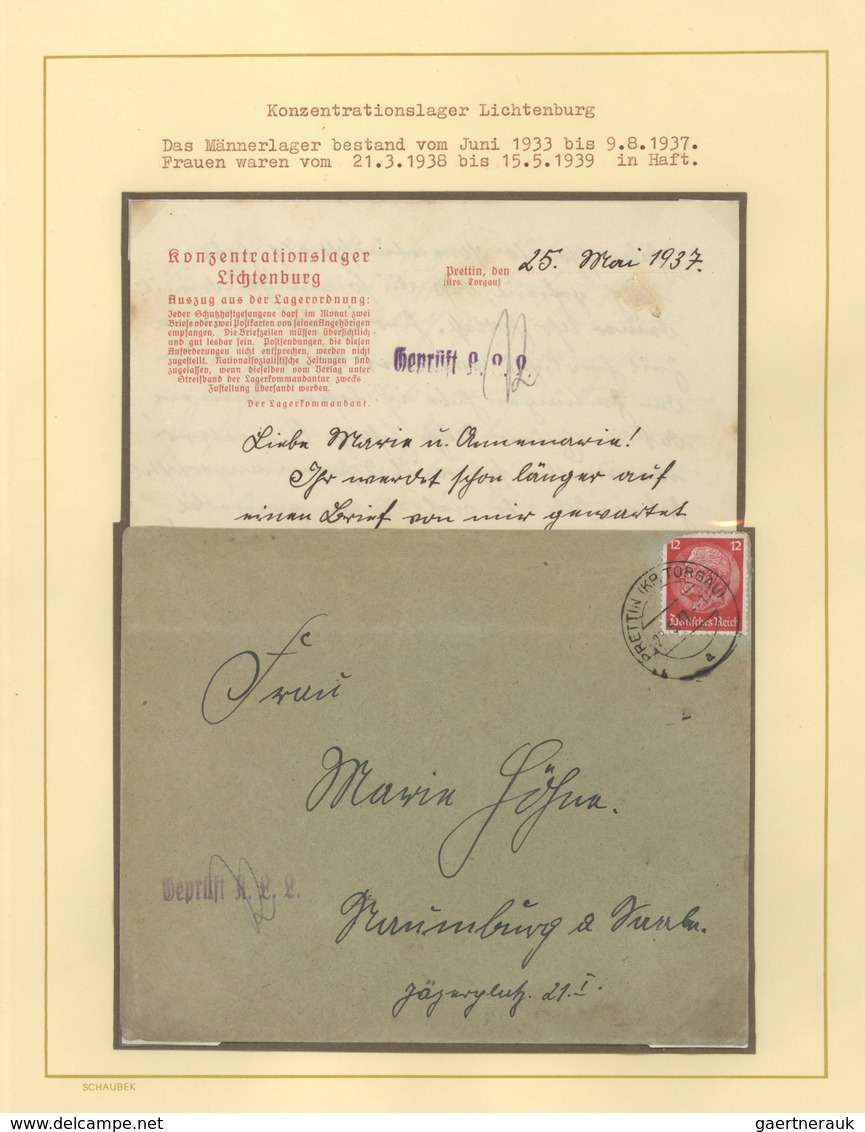 Konzentrationslager Lichtenburg
Das Männerlager bestand vom Juni 1933 bis 9.8.1937.
Frauen waren vom 21.3.1938 bis 15.5.1939 in Haft.
Konzentrationslager
Lichtenburg
Prettin, den 25. Mai 1937.
(Krs. Torgau)
Auszug aus der Lagerordnung:
Jeder Schutzhaftgefangene darf im Monat zwei
Briefe oder zwei Postkarten von seinen Angehörigen
empfangen. Die Briefzeilen müssen übersichtlich
und gut lesbar sein. Postsendungen, die diesen
Anforderungen nicht entsprechen, werden nicht
zugestellt. Nationalsozialistische Zeitungen sind
zugelassen, wenn dieselben vom Verlag unter
Streifband der Lagerkommandantur zwecks
Zustellung übersandt werden.
Der Lagerkommandant.
Geprüft K. L. L.
Liebe Marie u. Annemarie!
Ihr werdet schon länger auf
einen Brief von mir gewartet
12 12
Deutsches Reich
PRETTIN (KR. TORGAU)
a
Frau
Marie Höhne.
Geprüft K. L. L.
Naumburg a Saale.
Jägerplatz. 21. I.
SCHAUBEK
gaertnerauk